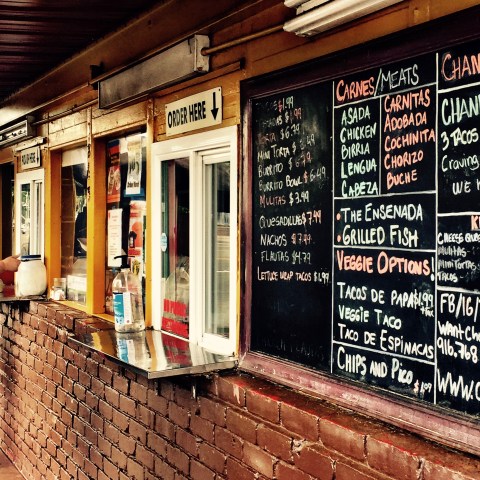 ORDER HERE ↓
$1.99
TORTA $6.49
MINI TORTA $3.99
BURRITO $6.49
BURRITO BOWL $6.49
MULITAS $3.49
QUESADILLAS $7.49
NACHOS $7.49
FLAUTAS $4.79
LETTUCE WRAP TACOS $1.99
CARNES/MEATS
ASADA
CHICKEN
BIRRIA
LENGUA
CABEZA
CARNITAS
ADOBADA
COCHINITA
CHORIZO
BUCHE
THE ENSENADA
GRILLED FISH
VEGGIE OPTIONS!
TACOS DE PAPA $1.99
+TAX
VEGGIE TACO
TACO DE ESPINACAS
CHIPS AND PICO $1.09
CHAN
CHAN
3 TACOS
Craving
WE
CHEESE QUE
MULITAS
MINI TORTAS
TACOS
FB/IG/
WANT CH
916.768
WWW.C